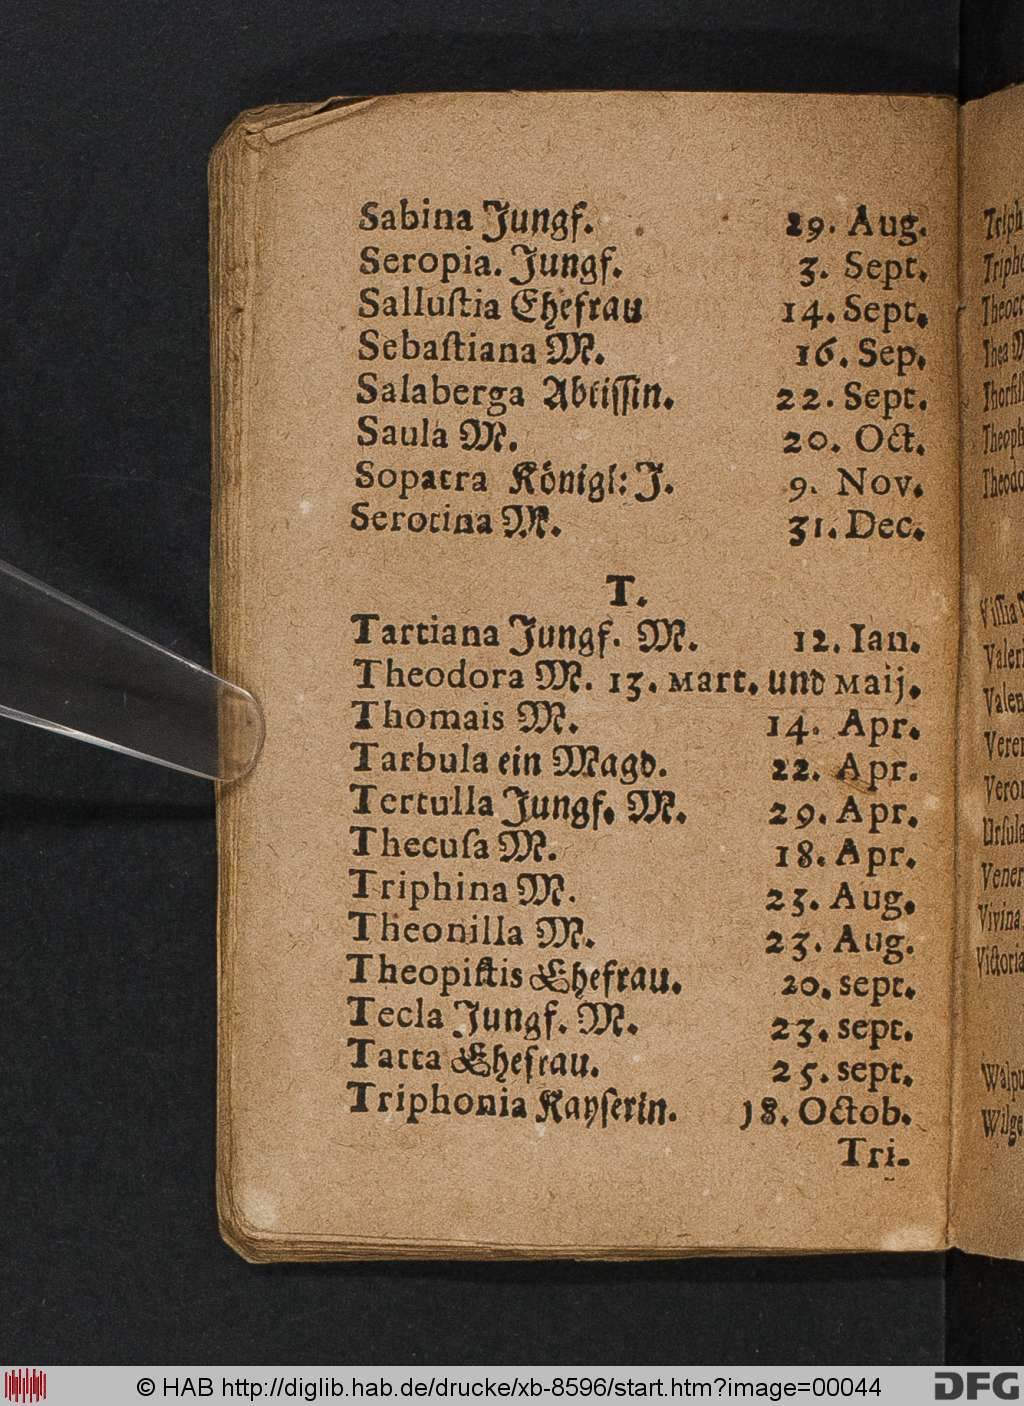 Sabina Jungf. 29. Aug.
Seropia. Jungf. 3. Sept.
Salluſtia Ehefrau 14. Sept.
Sebaſtiana M. 16. Sep.
Salaberga Abtiſſin. 22. Sept.
Saula M. 20. Oct.
Sopatra Königl: J. 9. Nov.
Serotina M. 31. Dec.
T.
Tartiana Jungf. M. 12. Ian.
Theodora M. 13. Mart. und Maij.
Thomais M. 14. Apr.
Tarbula ein Magd. 22. Apr.
Tertulla Jungf. M. 29. Apr.
Thecuſa M. 18. Apr.
Triphina M. 23. Aug.
Theonilla M. 23. Aug.
Theopiſtis Ehefrau. 20. sept.
Tecla Jungf. M. 23. sept.
Tatta Ehefrau. 25. sept.
Triphonia Kayſerin. 18. Octob.
Tri.
© HAB http://diglib.hab.de/drucke/xb-8596/start.htm?image=00044
DFG